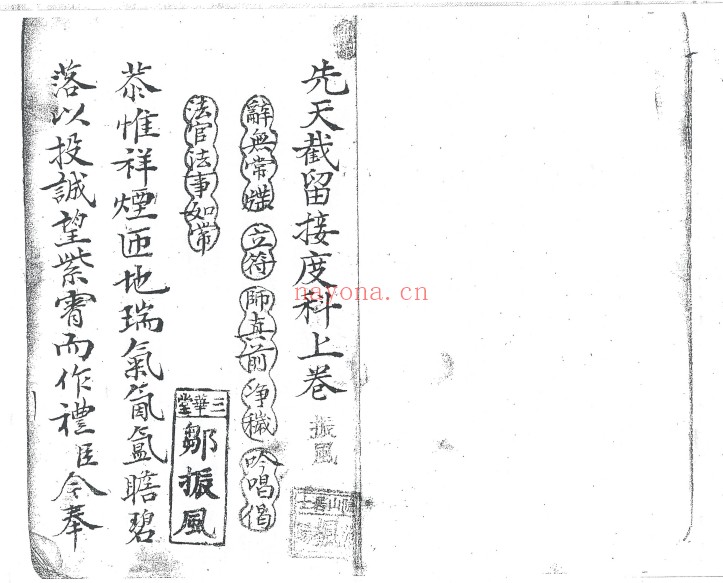 先天截留接度科上卷
振風
辭無常 立符 師真前淨穢 吟唱偈
法官法事如常
三華堂
鄒振風
恭惟祥煙匝地瑞氣氤氳瞻碧
落以投誠望紫霄而作禮臣今奉
nayona.cn